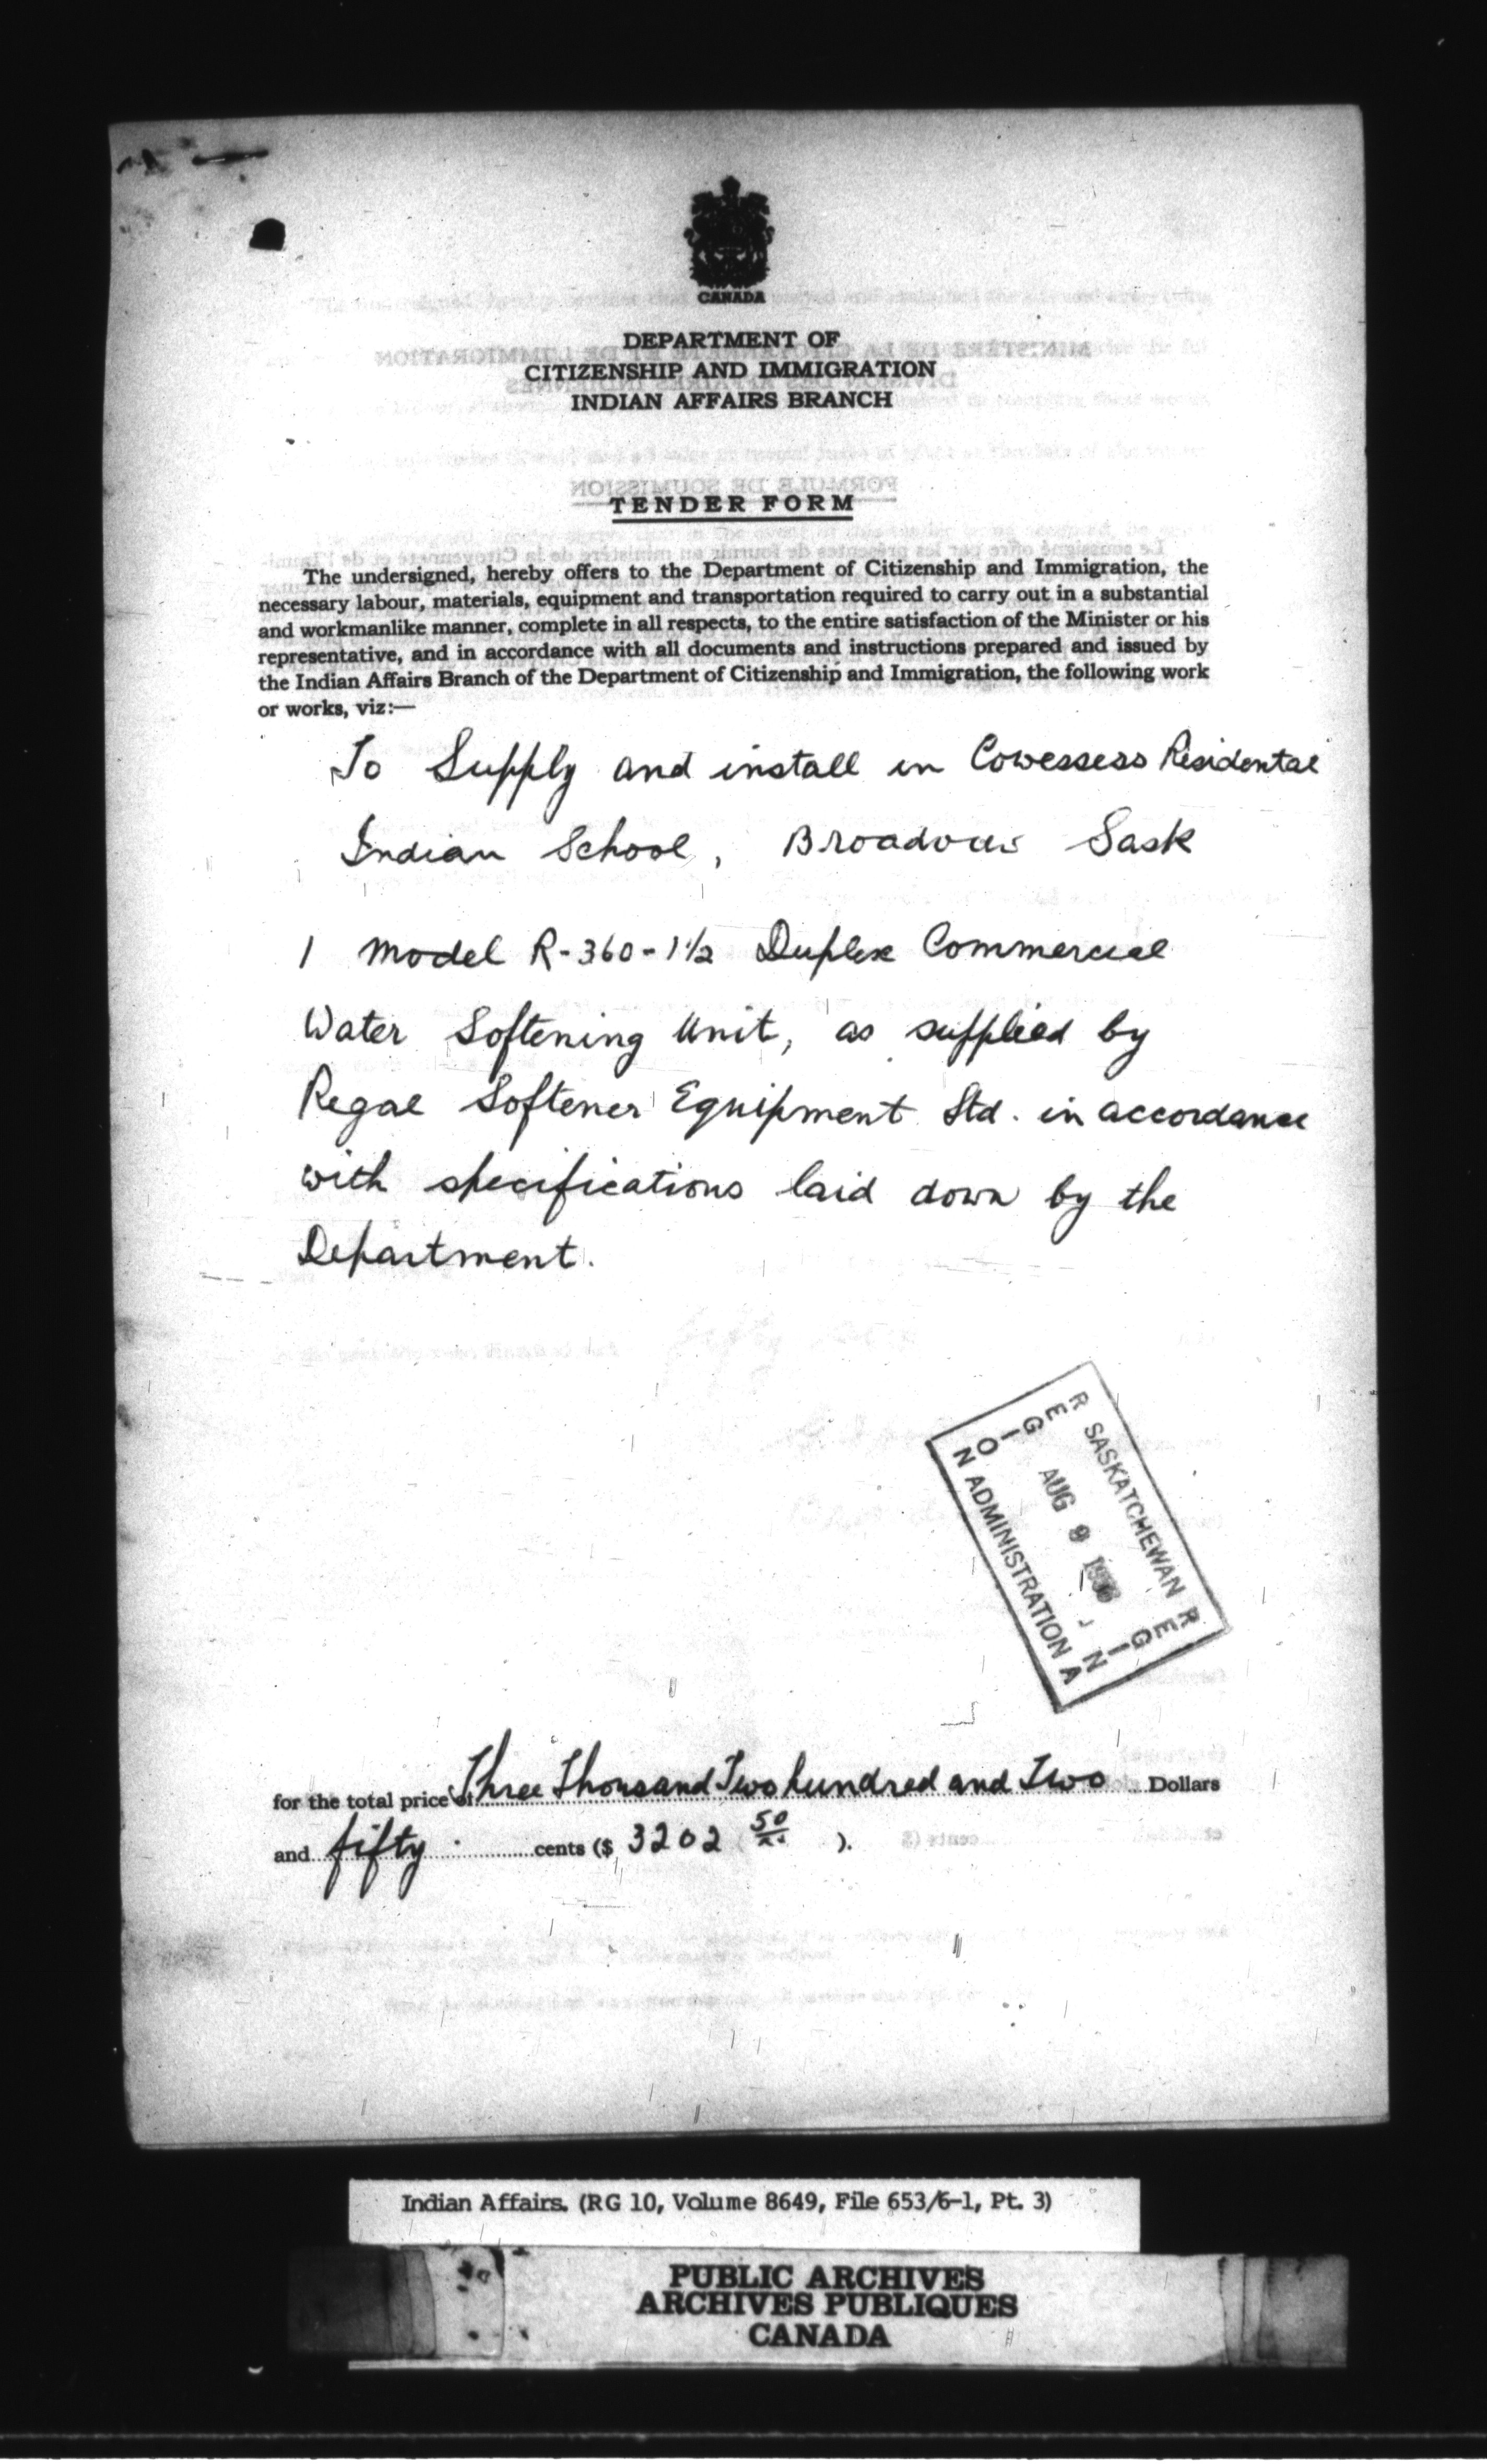 CANADA
DEPARTMENT OF
CITIZENSHIP AND IMMIGRATION
INDIAN AFFAIRS BRANCH
TENDER FORM
The undersigned, hereby offers to the Department of Citizenship and Immigration, the
necessary labour, materials, equipment and transportation required to carry out in a substantial
and workmanlike manner, complete in all respects, to the entire satisfaction of the Minister or his
representative, and in accordance with all documents and instructions prepared and issued by
the Indian Affairs Branch of the Department of Citizenship and Immigration, the following work
or works, viz:—
To Supply and install in Cowessess Residental
Indian School, Broadview Sask
1 Model R-360-1½ Duplex Commercial
Water Softening Unit, as supplied by
Regal Softener Equipment Ltd. in accordance
with specifications laid down by the
Department.
REGION
SASKATCHEWAN
AUG 9
ADMINISTRATION
for the total price of Three Thousand Two hundred and Two Dollars
and fifty cents ($ 3202 50/xx ).
Indian Affairs. (RG 10, Volume 8649, File 653/6-1, Pt. 3)
PUBLIC ARCHIVES
ARCHIVES PUBLIQUES
CANADA